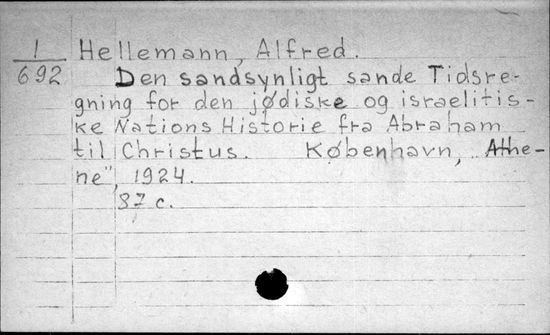 1/692 Hellemann, Alfred.
Den sandsynligt sande Tidsre-
gning for den jødiske og israelitis-
ke Nations Historie fra Abraham
til Christus. København, Athe-
ne", 1924.
87 c.